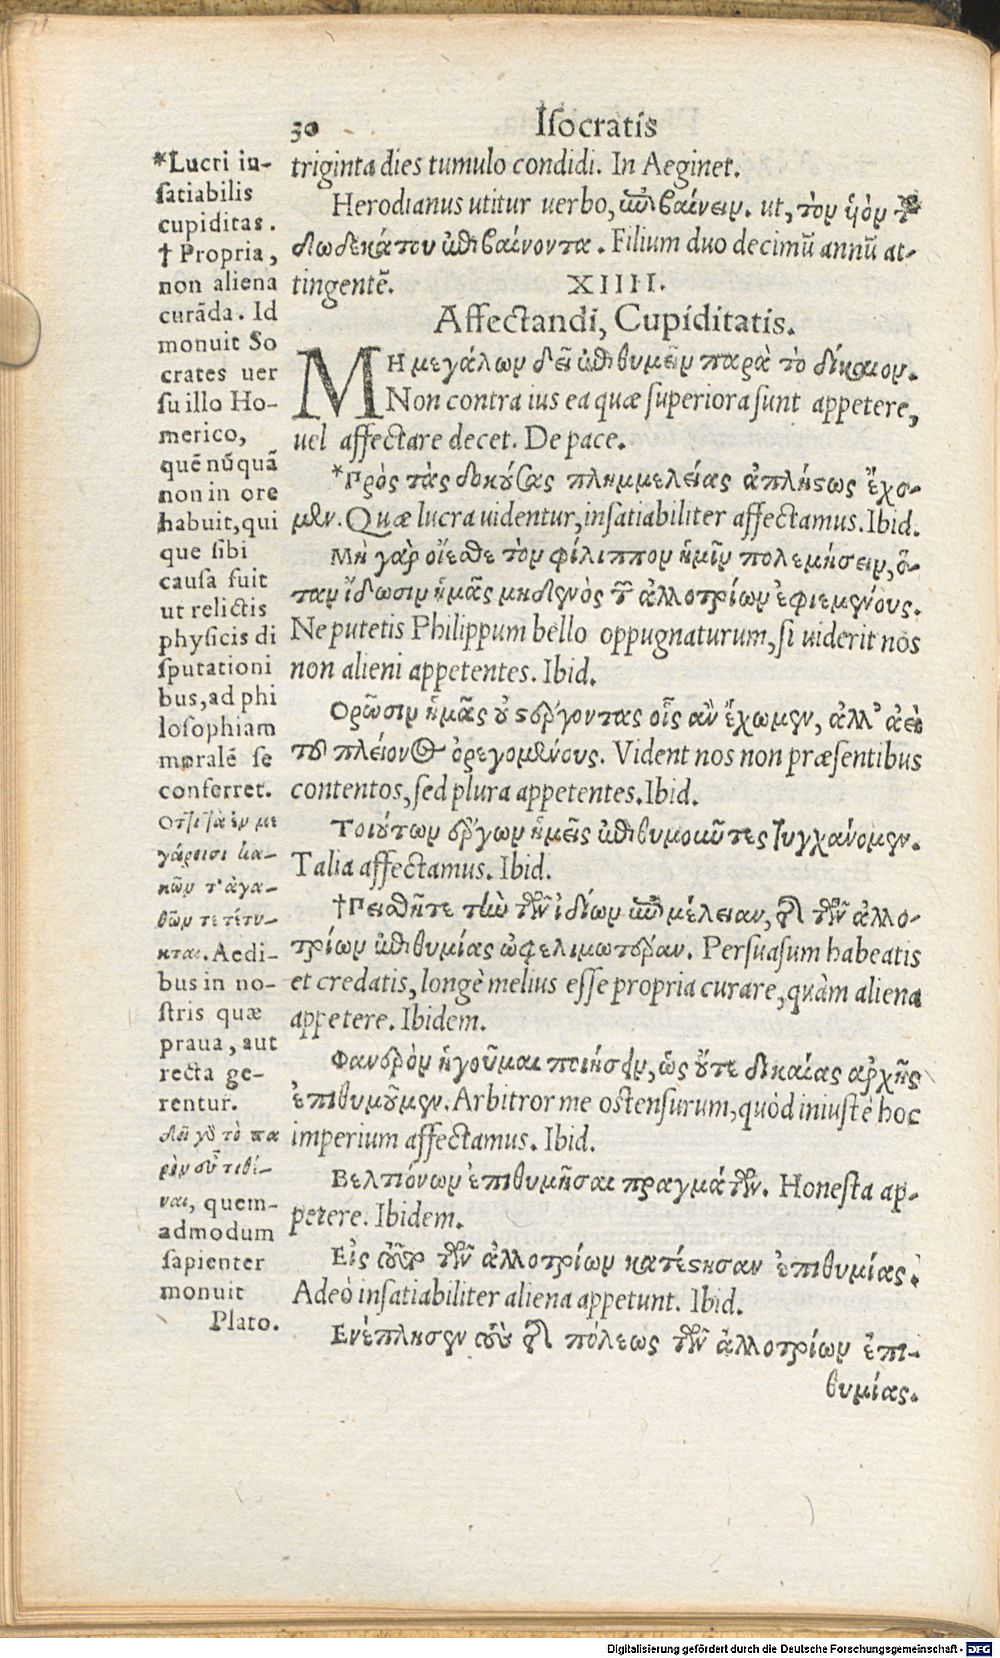 30 Isocratis
triginta dies tumulo condidi. In Aeginet.
Herodianus utitur uerbo, ἐπιβαίνειν. ut, τὸν ὑὸν τ̃
δωδεκάτου ἐπιβαίνοντα. Filium duo decimũ annũ at-
tingentẽ. XIIII.
Affectandi, Cupiditatis.
ΜΗ μεγάλων δεῖ ἐπιθυμεῖν παρὰ τὸ δίκαιον.
Non contra ius ea quæ superiora sunt appetere,
uel affectare decet. De pace.
*Πρὸς τὰς δοκούσας πλημμελείας ἀπλήστως ἔχο-
μεν. Quæ lucra uidentur, insatiabiliter affectamus. Ibid.
Μὴ γὰρ οἴεσθε τὸν φίλιππον ἡμῖν πολεμήσειν, ὅ-
ταν ἴδωσιν ἡμᾶς μηδενὸς τ̃ ἀλλοτρίων ἐφιεμένους.
Ne putetis Philippum bello oppugnaturum, si uiderit nos
non alieni appetentes. Ibid.
Ορῶσιν ἡμᾶς οὐ στέργοντας οἷς ἂν ἔχωμεν, ἀλλ' ἀεὶ
τοῦ πλείονος ὀρεγομένους. Vident nos non præsentibus
contentos, sed plura appetentes. Ibid.
Τοιούτων ἔργων ἡμεῖς ἐπιθυμοῦντες τυγχάνομεν.
Talia affectamus. Ibid.
†Πεισθῆτε τὴν τῶν ἰδίων ἐπιμέλειαν, τῆς τῶν ἀλλο-
τρίων ἐπιθυμίας ὠφελιμωτέραν. Persuasum habeatis
et credatis, longè melius esse propria curare, quàm aliena
appetere. Ibidem.
Φανερὸν ἡγοῦμαι ποιήσειν, ὡς οὔτε δικαίας ἀρχῆς
ἐπιθυμοῦμεν. Arbitror me ostensurum, quòd iniustè hoc
imperium affectamus. Ibid.
Βελτιόνων ἐπιθυμῆσαι πραγμάτων. Honesta ap-
petere. Ibidem.
Εἰς τῶν ἀλλοτρίων κατέστησαν ἐπιθυμίας.
Adeò insatiabiliter aliena appetunt. Ibid.
Ενέπλησεν τῆς πόλεως τῶν ἀλλοτρίων ἐπι-
θυμίας.
*Lucri in-
satiabilis
cupiditas.
† Propria,
non aliena
curãda. Id
monuit So
crates uer
su illo Ho-
merico,
quẽ nũquã
non in ore
habuit, qui
que sibi
causa fuit
ut relictis
physicis di
sputationi
bus, ad phi
losophiam
moralẽ se
conferret.
Οττι τὰ ἐν με
γάροισι κα-
κῶν τ' ἀγα-
θῶν τε τέτυ-
κται. Aedi-
bus in no-
stris quæ
praua, aut
recta ge-
rentur.
Δεῖ γὸ τὸ πα
ρὸν εὖ τιθέ-
ναι, quem-
admodum
sapienter
monuit
Plato.
Digitalisierung gefördert durch die Deutsche Forschungsgemeinschaft - DFG